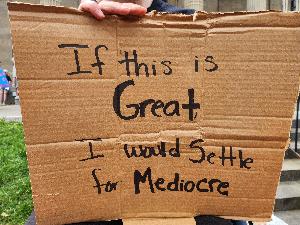 If this is
Great
I would Settle
for Mediocre